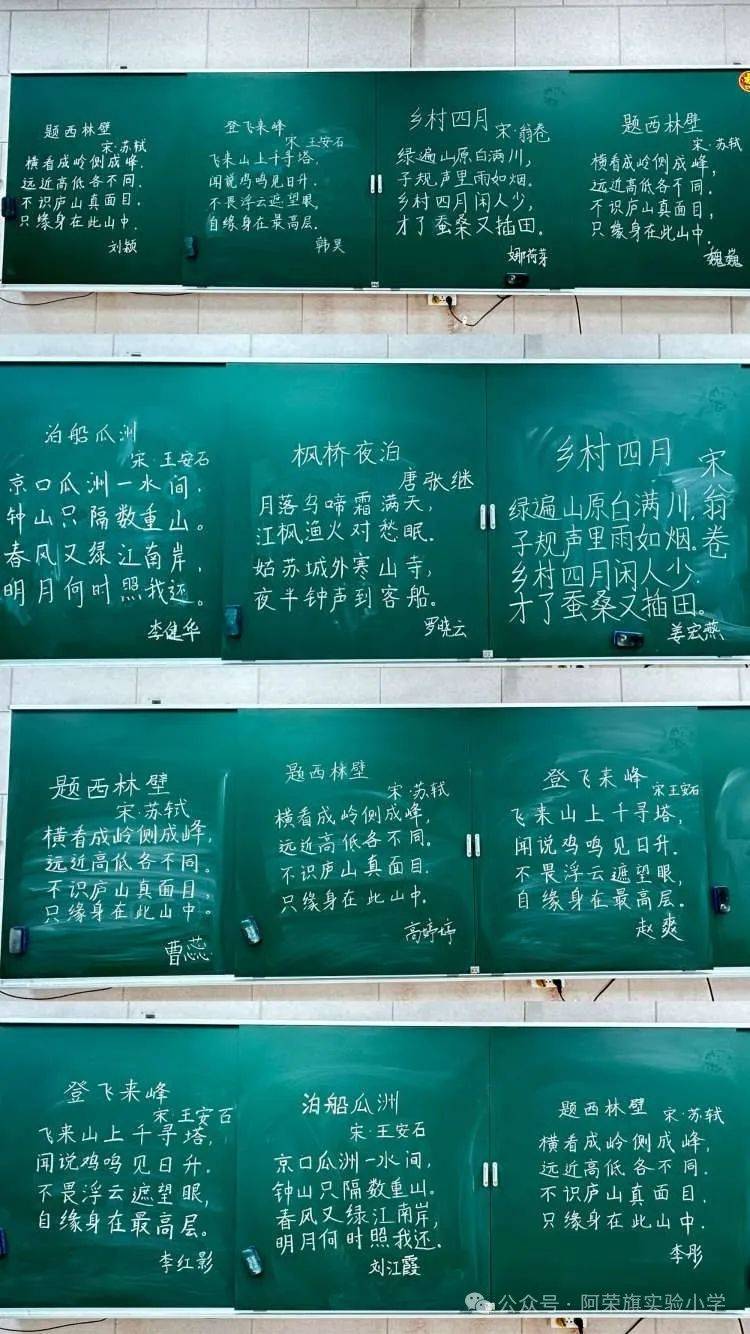 题西林壁
宋·苏轼
横看成岭侧成峰,
远近高低各不同.
不识庐山真面目,
只缘身在此山中.
刘颖
登飞来峰
宋 王安石
飞来山上千寻塔,
闻说鸡鸣见日升.
不畏浮云遮望眼,
自缘身在最高层.
韩昊
乡村四月
宋·翁卷
绿遍山原白满川,
子规声里雨如烟.
乡村四月闲人少,
才了蚕桑又插田.
娜荷芽
题西林壁
宋·苏轼
横看成岭侧成峰,
远近高低各不同.
不识庐山真面目,
只缘身在此山中.
魏巍
泊船瓜洲
宋·王安石
京口瓜洲一水间,
钟山只隔数重山。
春风又绿江南岸,
明月何时照我还。
李健华
枫桥夜泊
唐张继
月落乌啼霜满天,
江枫渔火对愁眠.
姑苏城外寒山寺,
夜半钟声到客船。
罗晓云
乡村四月
宋翁卷
绿遍山原白满川,
子规声里雨如烟。
乡村四月闲人少.
才了蚕桑又插田。
姜宏燕
题西林壁
宋·苏轼
横看成岭侧成峰,
远近高低各不同。
不识庐山真面目
只缘身在此山中。
曹蕊
题西林壁
宋·苏轼
横看成岭侧成峰,
远近高低各不同.
不识庐山真面目.
只缘身在此山中.
高婷婷
登飞来峰
宋王安石
飞来山上千寻塔,
闻说鸡鸣见日升.
不畏浮云遮望眼,
自缘身在最高层.
赵爽
登飞来峰
宋·王安石
飞来山上千寻塔,
闻说鸡鸣见日升.
不畏浮云遮望眼,
自缘身在最高层。
李红影
泊船瓜洲
宋·王安石
京口瓜洲一水间,
钟山只隔数重山。
春风又绿江南岸,
明月何时照我还.
刘江霞
题西林壁
宋·苏轼
横看成岭侧成峰,
远近高低各不同.
不识庐山真面目.
只缘身在此山中.
李彤
公众号·阿荣旗实验小学